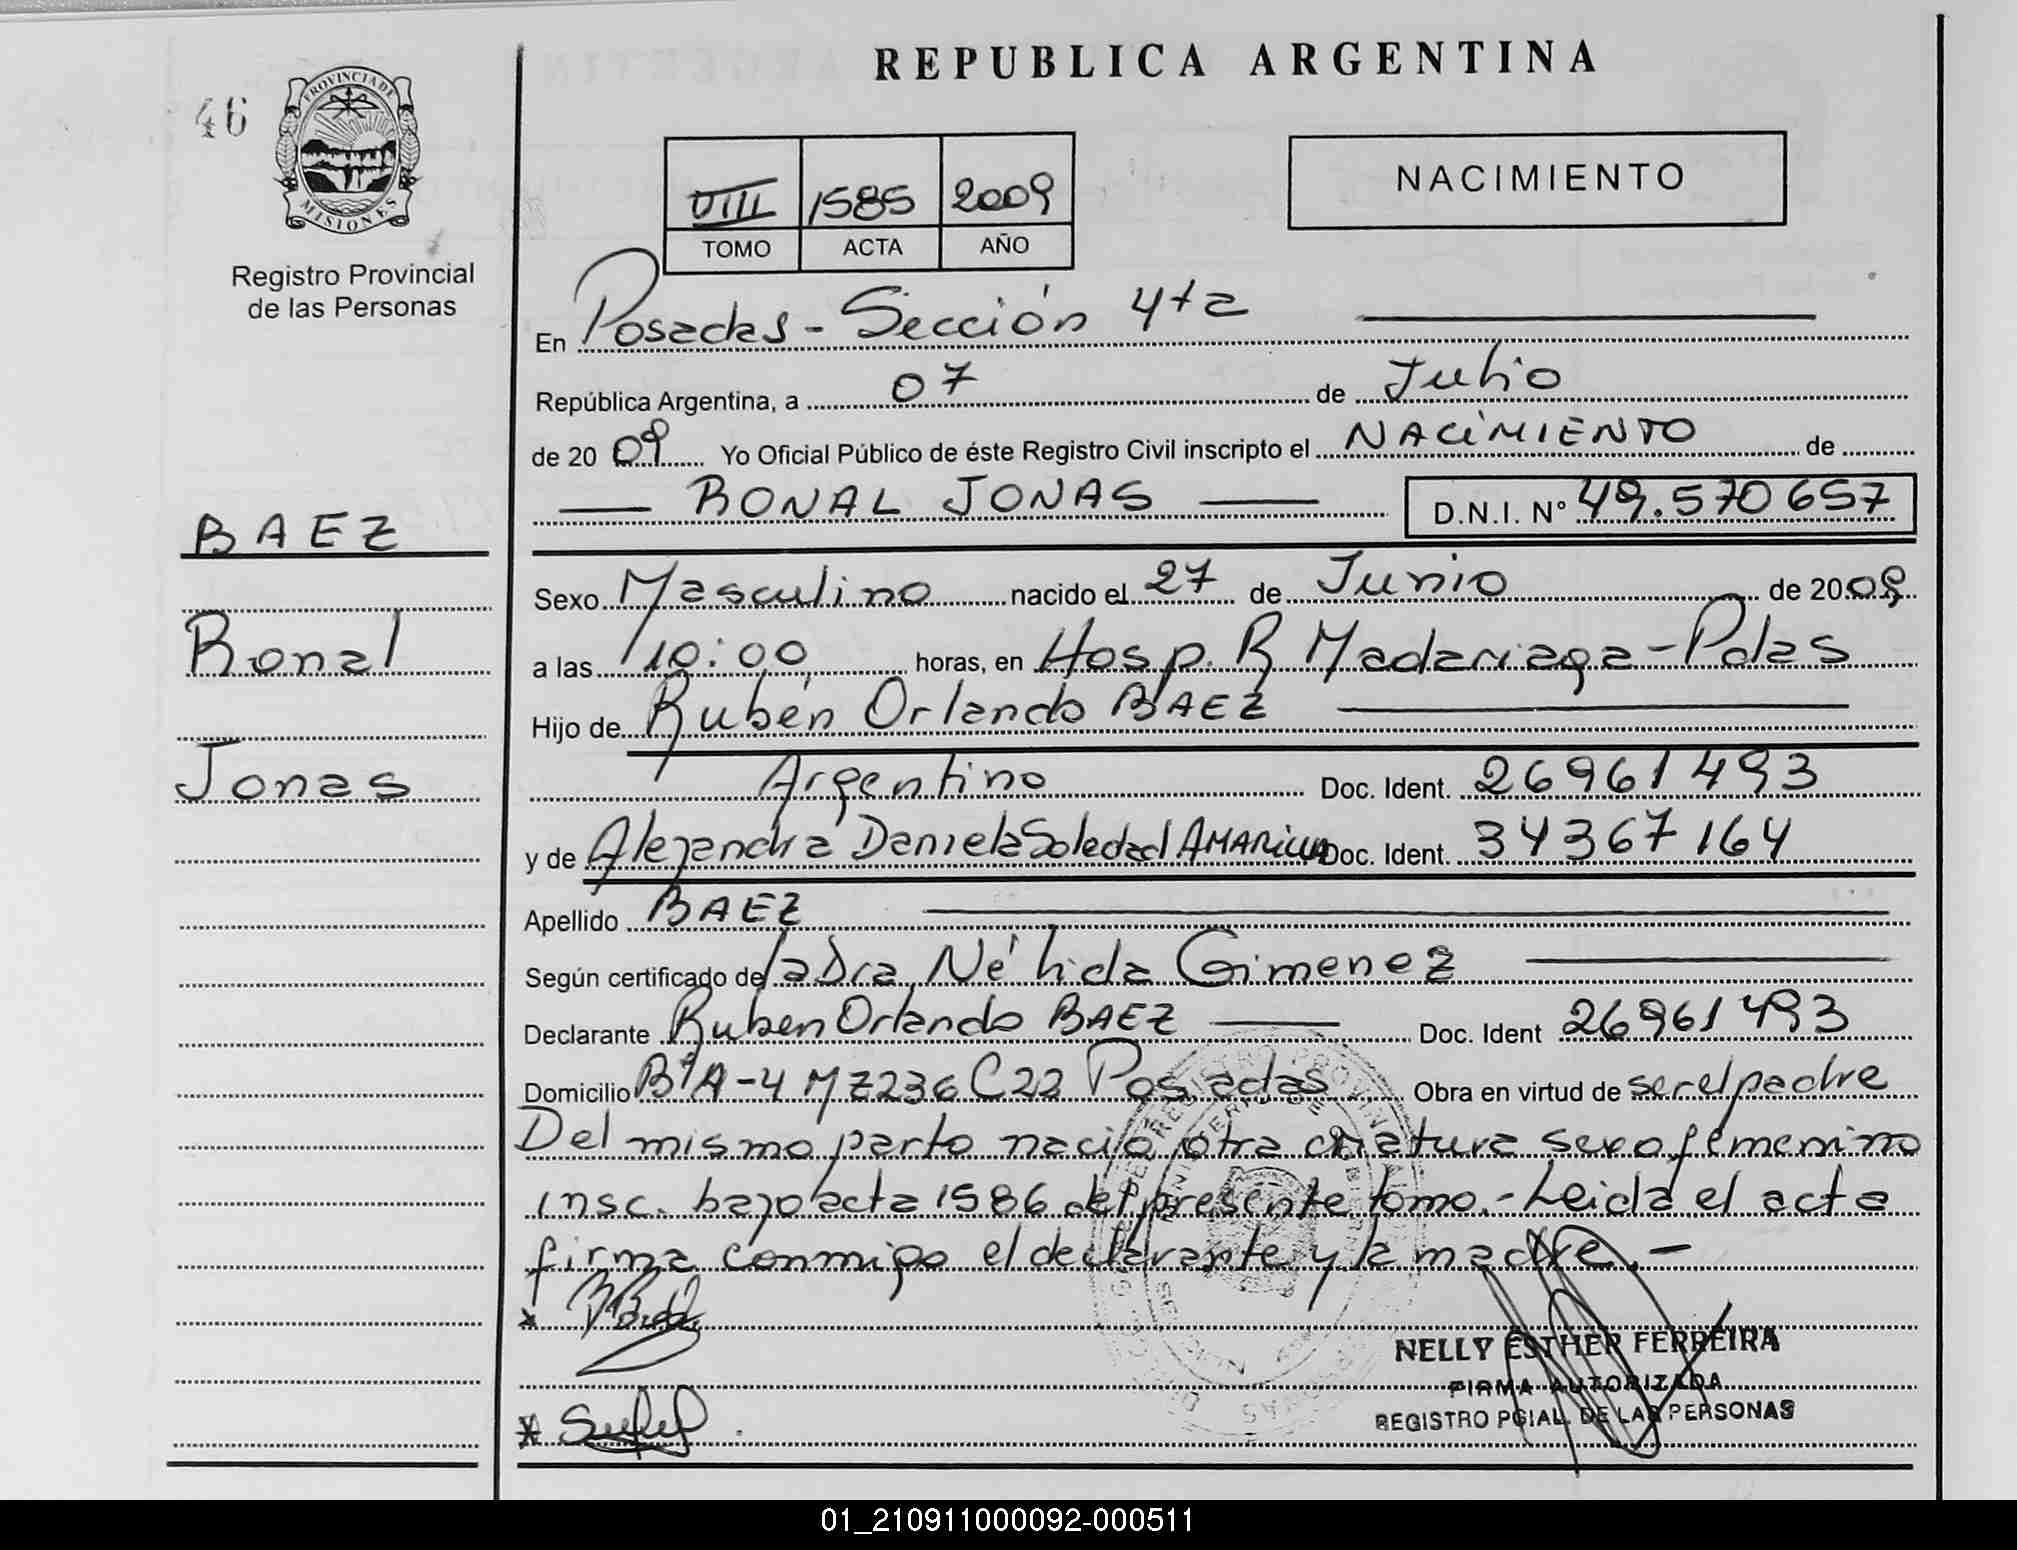 REPUBLICA ARGENTINA
46
PROVINCIA DE
MISIONES
Registro Provincial
de las Personas
VIII 1585 2009
TOMO ACTA AÑO
NACIMIENTO
En Posadas - Sección 4ta
República Argentina, a 07 de Julio
de 2009 Yo Oficial Público de éste Registro Civil inscripto el NACIMIENTO de
RONAL JONAS D.N.I. N° 49.570657
BAEZ
Ronal
Jonas
Sexo Masculino nacido el 27 de Junio de 2009
a las 10:00 horas, en Hosp. R Madariaga - Pdas
Hijo de Rubén Orlando BAEZ
Argentino Doc. Ident. 26961493
y de Alejandra Daniela Soledad AMARILLA Doc. Ident. 34367164
Apellido BAEZ
Según certificado de la Dra Nélida Gimenez
Declarante Ruben Orlando BAEZ Doc. Ident 26961493
Domicilio B°A-4 MZ236 C22 Posadas Obra en virtud de ser el padre
Del mismo parto nació otra criatura sexo femenino
insc. bajo acta 1586 del presente tomo.- Leida el acta
firma conmigo el declarante y la madre.-
NELLY ESTHER FERREIRA
FIRMA AUTORIZADA
REGISTRO PCIAL. DE LAS PERSONAS
01_210911000092-000511